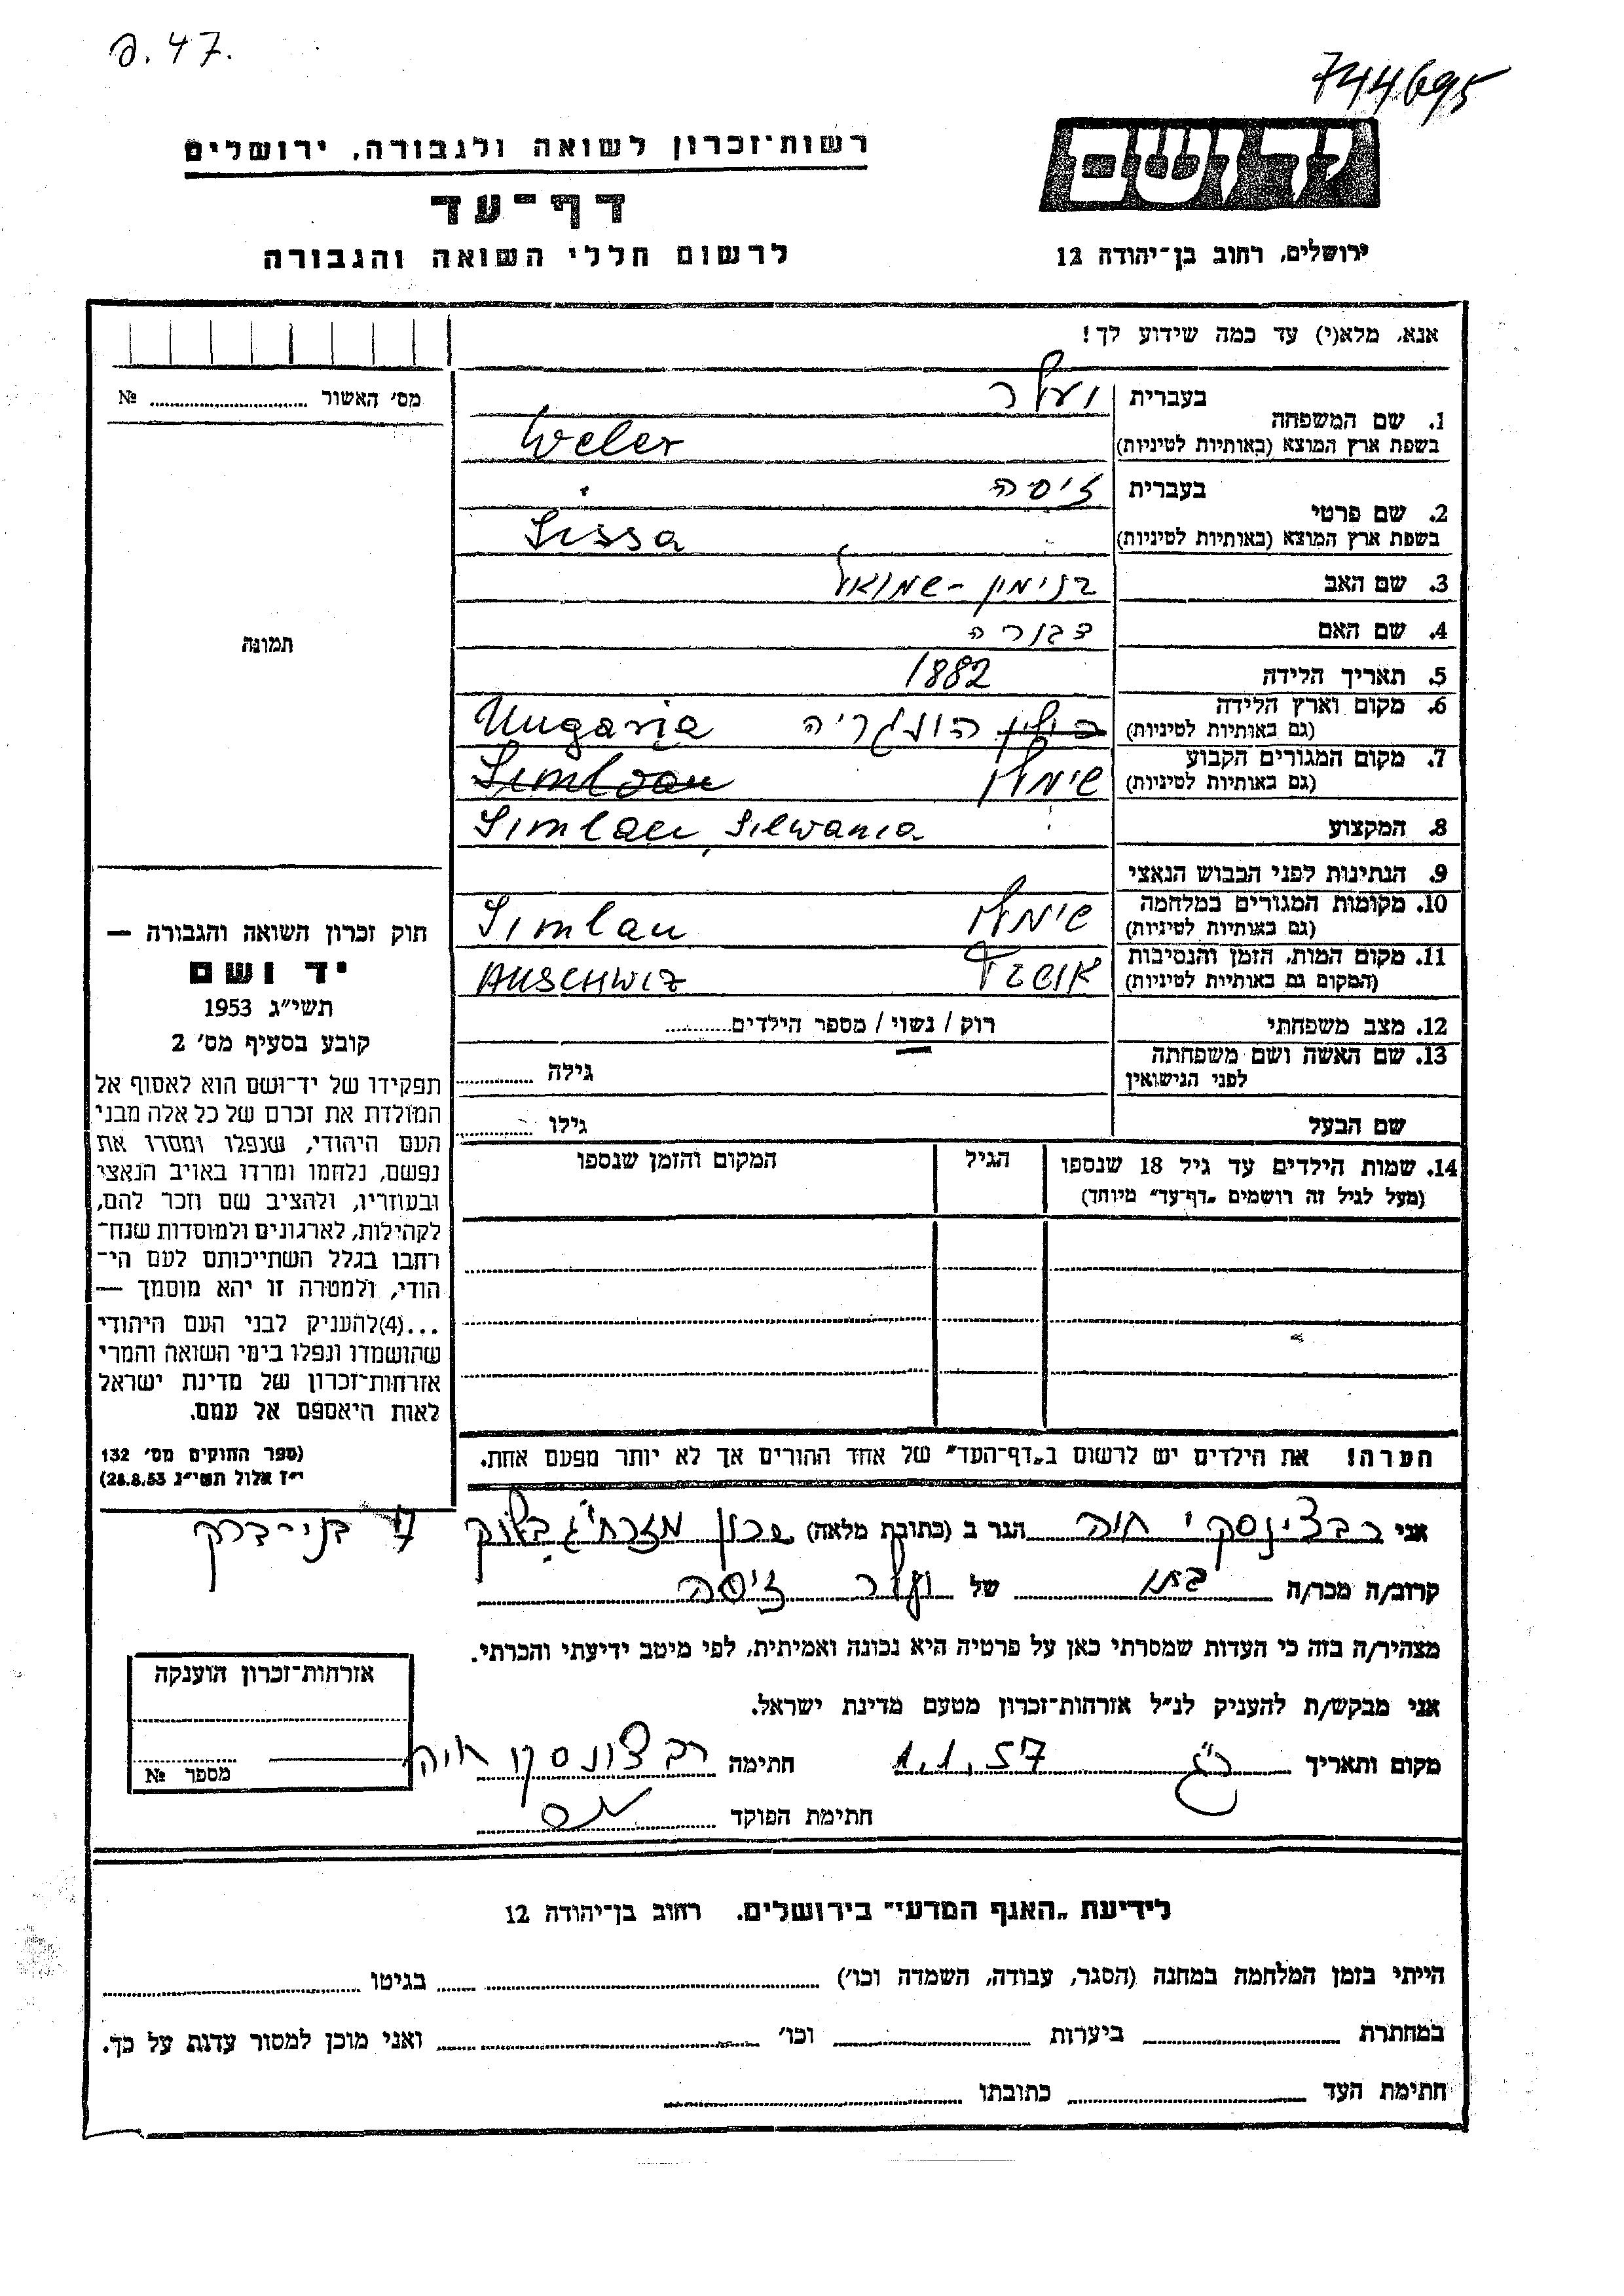 ə. 47.
744695
רשות־זכרון לשואה ולגבורה, ירושלים
דף־עד
לרשום חללי השואה והגבורה
יד ושם
ירושלים, רחוב בן־יהודה 12
אנא, מלא(י) עד כמה שידוע לך!
מס' האשור № 
1. שם המשפחה
בעברית ועלר
בשפת ארץ המוצא (באותיות לטיניות) Weler
2. שם פרטי
בעברית זיסה
בשפת ארץ המוצא (באותיות לטיניות) Sissa
3. שם האב בנימין - שמואל
4. שם האם דבורה
5. תאריך הלידה 1882
6. מקום וארץ הלידה
(גם באותיות לטיניות) הונגריה Ungaria
7. מקום המגורים הקבוע
(גם באותיות לטיניות) שימלוי Simloau
8. המקצוע Simlau, Silwania
9. הנתינות לפני הכבוש הנאצי
10. מקומות המגורים במלחמה
(גם באותיות לטיניות) שימלוי Simlau
11. מקום המות, הזמן והנסיבות
(המקום גם באותיות לטיניות) AUSCHWIZ
12. מצב משפחתי רוק / נשוי / מספר הילדים
13. שם האשה ושם משפחתה
לפני הנישואין גילה
שם הבעל גילו
14. שמות הילדים עד גיל 18 שנספו
(מעל לגיל זה רושמים „דף־עד" מיוחד)
הגיל
המקום והזמן שנספו
הערה! את הילדים יש לרשום ב„דף־העד" של אחד ההורים אך לא יותר מפעם אחת.
תמונה
חוק זכרון השואה והגבורה —
יד ושם
תשי"ג 1953
קובע בסעיף מס' 2
תפקידו של יד־ושם הוא לאסוף אל
המולדת את זכרם של כל אלה מבני
העם היהודי, שנפלו ומסרו את
נפשם, נלחמו ומרדו באויב הנאצי
ובעוזריו, ולהציב שם וזכר להם,
לקהילות, לארגונים ולמוסדות שנח־
רחבו בגלל השתייכותם לעם הי־
הודי, ולמטרה זו יהא מוסמך —
...(4)להעניק לבני העם היהודי
שהושמדו ונפלו בימי השואה והמרי
אזרחות־זכרון של מדינת ישראל
לאות היאספם אל עמם.
(ספר החוקים מס' 132
י"ז אלול תשי"ג 28.8.53)
אני רבצינסקי חיה הגר ב (כתובת מלאה) שכון מזרחי ג בלוק 17 בני-ברק
קרוב/ה מכר/ה בתו של ועלר זיסה
מצהיר/ה בזה כי העדות שמסרתי כאן על פרטיה היא נכונה ואמיתית, לפי מיטב ידיעתי והכרתי.
אני מבקש/ת להעניק לנ"ל אזרחות־זכרון מטעם מדינת ישראל.
מקום ותאריך 1.1.57 חתימה רבצינסקי חיה
חתימת הפוקד
אזרחות־זכרון הוענקה
מספר №
לידיעת „האגף המדעי" בירושלים. רחוב בן־יהודה 12
הייתי בזמן המלחמה במחנה (הסגר, עבודה, השמדה וכו') בגיטו
במחתרת ביערות וכו' ואני מוכן למסור עדות על כך.
חתימת העד כתובתו